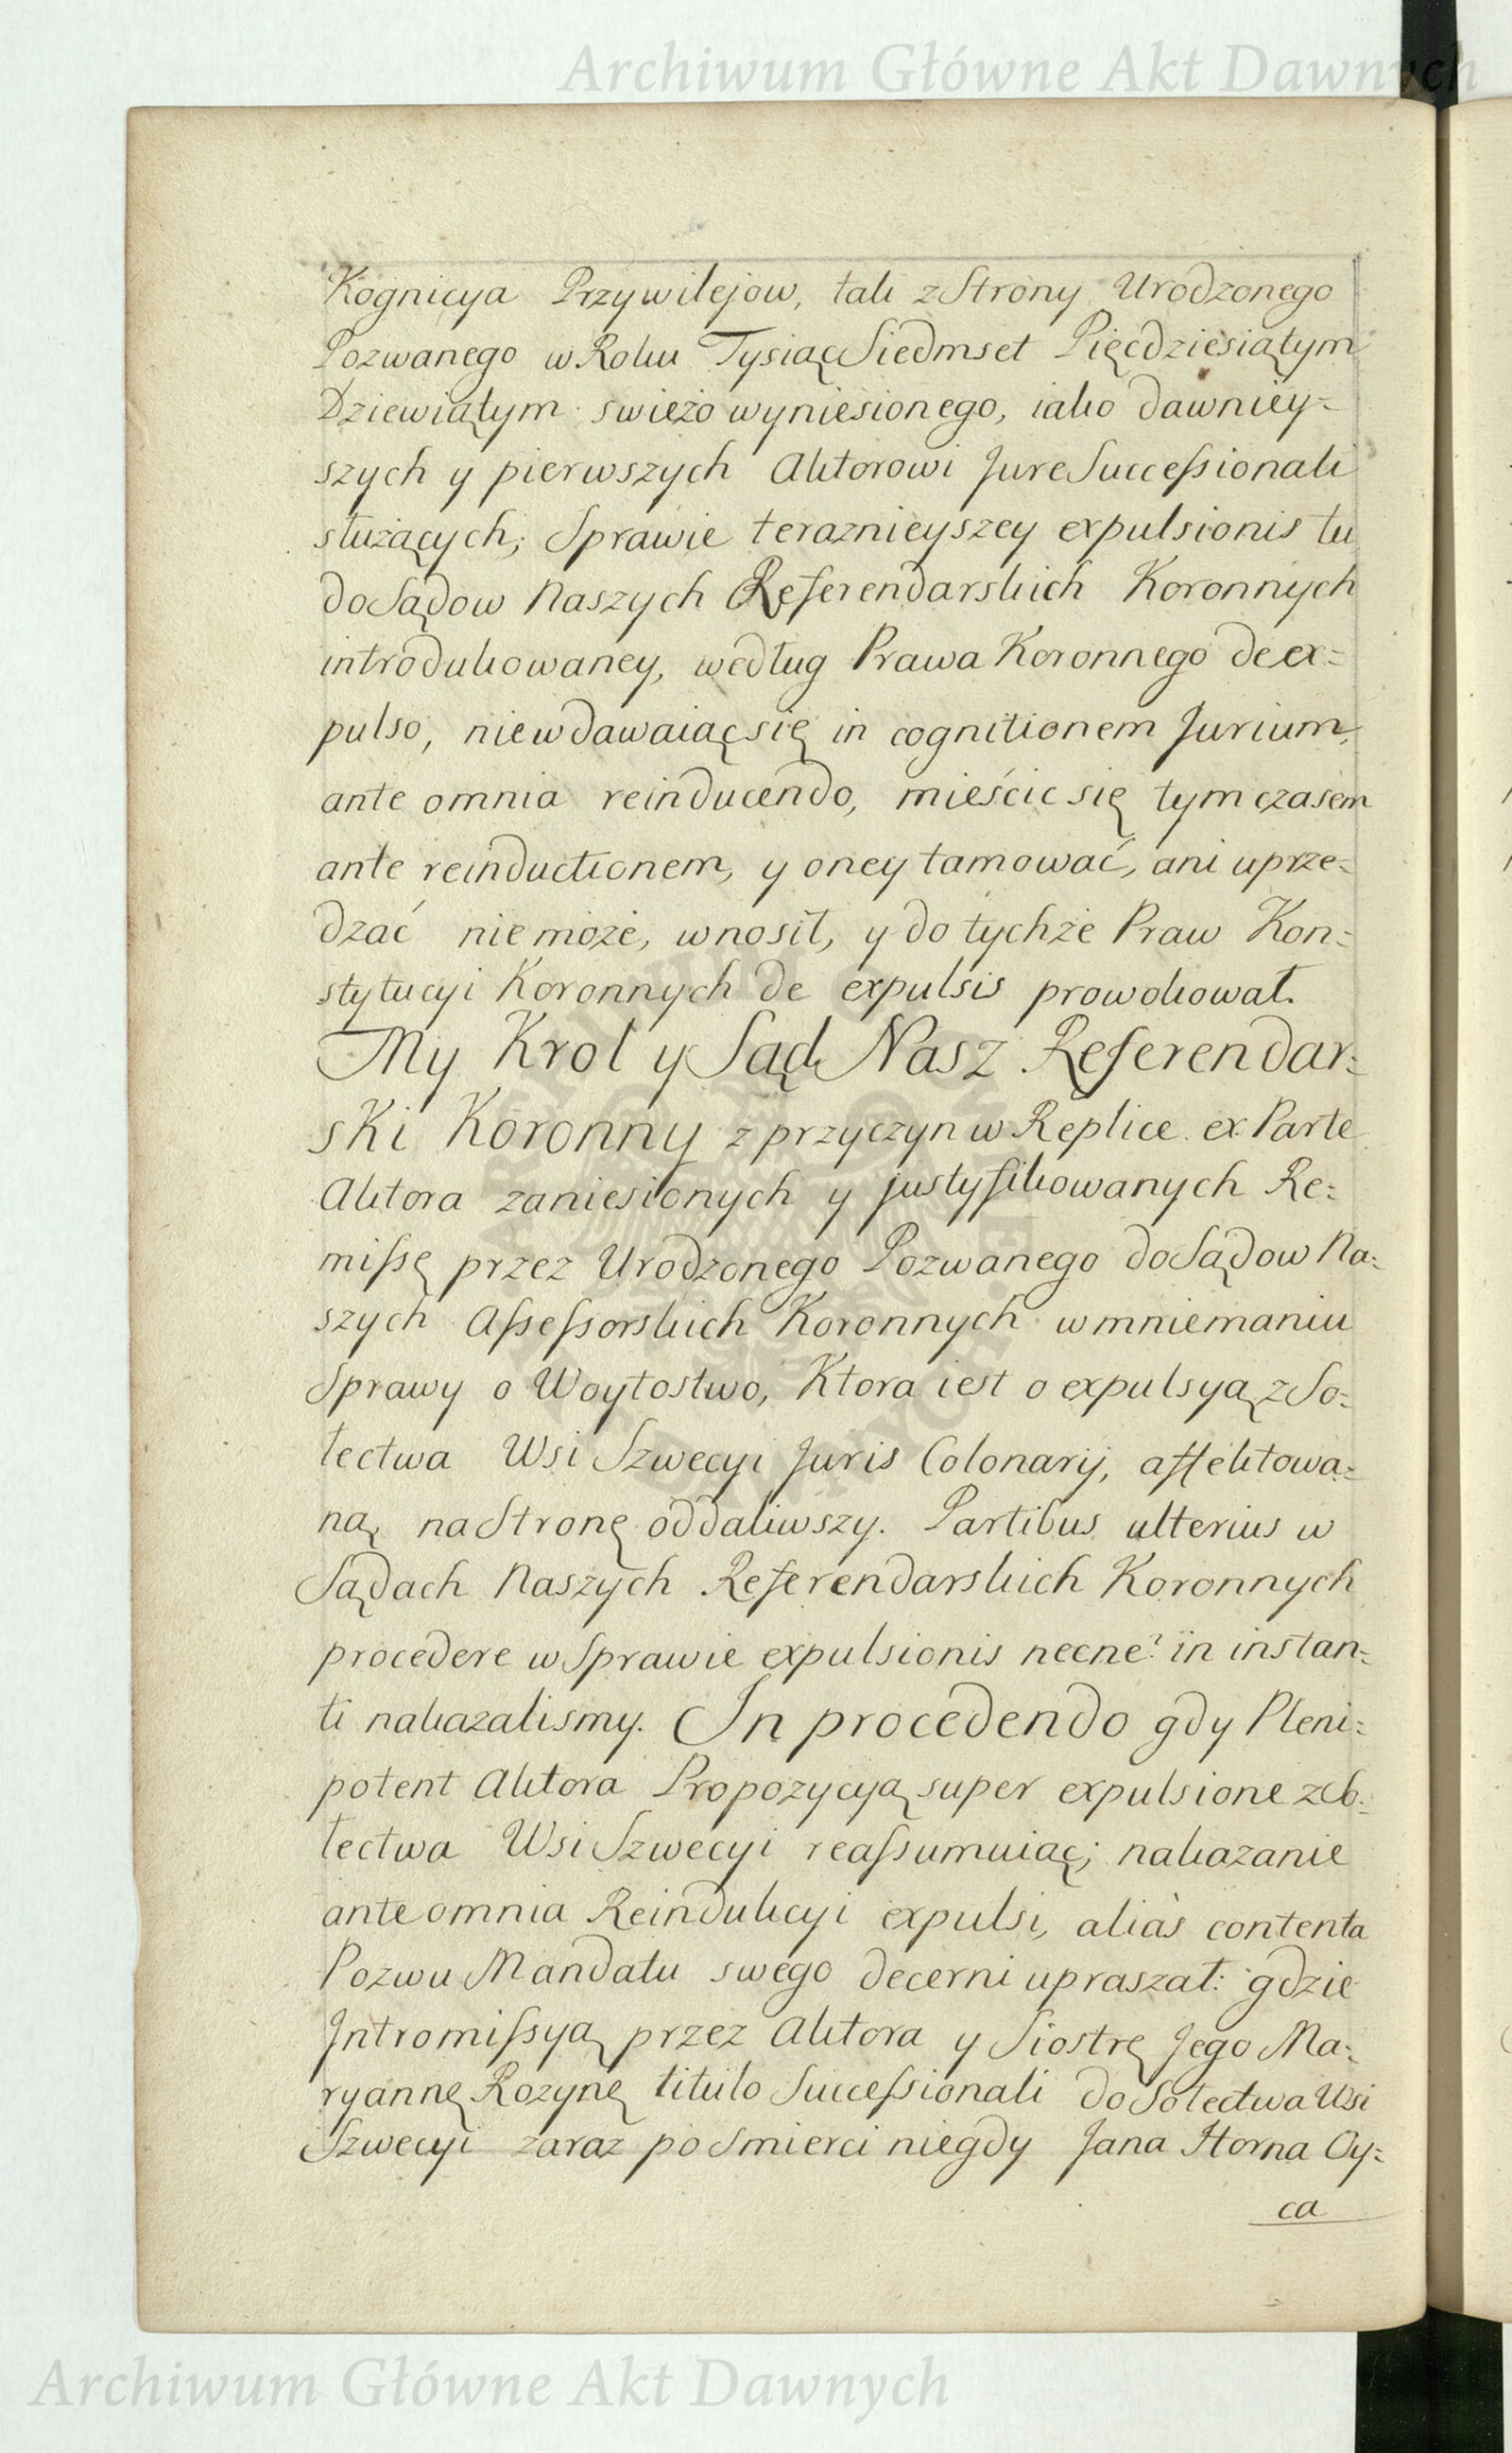 Archiwum Główne Akt Dawnych
Kognicya Przywilejow, tak z Strony Urodzonego
Pozwanego w Roku Tysiąc Siedmset Pięcdziesiątym
Dziewiątym swieżo wyniesionego, iako dawniey=
szych y pierwszych Aktorowi Jure Successionali
służących, Sprawie teraznieyszey expulsionis tu
do Sądow Naszych Referendarskich Koronnych
introdukowaney, według Prawa Koronnego de ex=
pulso, niewdawaiąc się in cognitionem Jurium,
ante omnia reinducendo, mieścic się tym czasem
ante reinductionem, y oney tamować, ani uprze=
dzać nie może, wnosił, y do tychże Praw Kon=
stytucyi Koronnych de expulsis prowokował.
My Krol y Sąd Nasz Referendar=
ski Koronny z przyczyn w Replice ex Parte
Aktora zaniesionych y justyfikowanych Re=
missę przez Urodzonego Pozwanego do Sądow Na=
szych Assessorskich Koronnych w mniemaniu
Sprawy o Woytostwo, Ktora iest o expulsyą z So=
łectwa Wsi Szwecyi Juris Colonarij, affektowa=
ną, na Stronę oddaliwszy. Partibus ulterius w
Sądach Naszych Referendarskich Koronnych
procedere w Sprawie expulsionis necne? in instan=
ti nakazalismy. In procedendo gdy Pleni=
potent Aktora Propozycyą super expulsione z So=
łectwa Wsi Szwecyi reassumuiąc; nakazanie
ante omnia Reindukcyi expulsi, aliàs contenta
Pozwu Mandatu swego decerni upraszał: gdzie
Intromissyą przez Aktora y Siostrę Jego Ma=
ryannę Rozynę titulo Successionali do Sołectwa Wsi
Szwecyi zaraz po Smierci niegdy Jana Horna Oy=
ca
Archiwum Główne Akt Dawnych